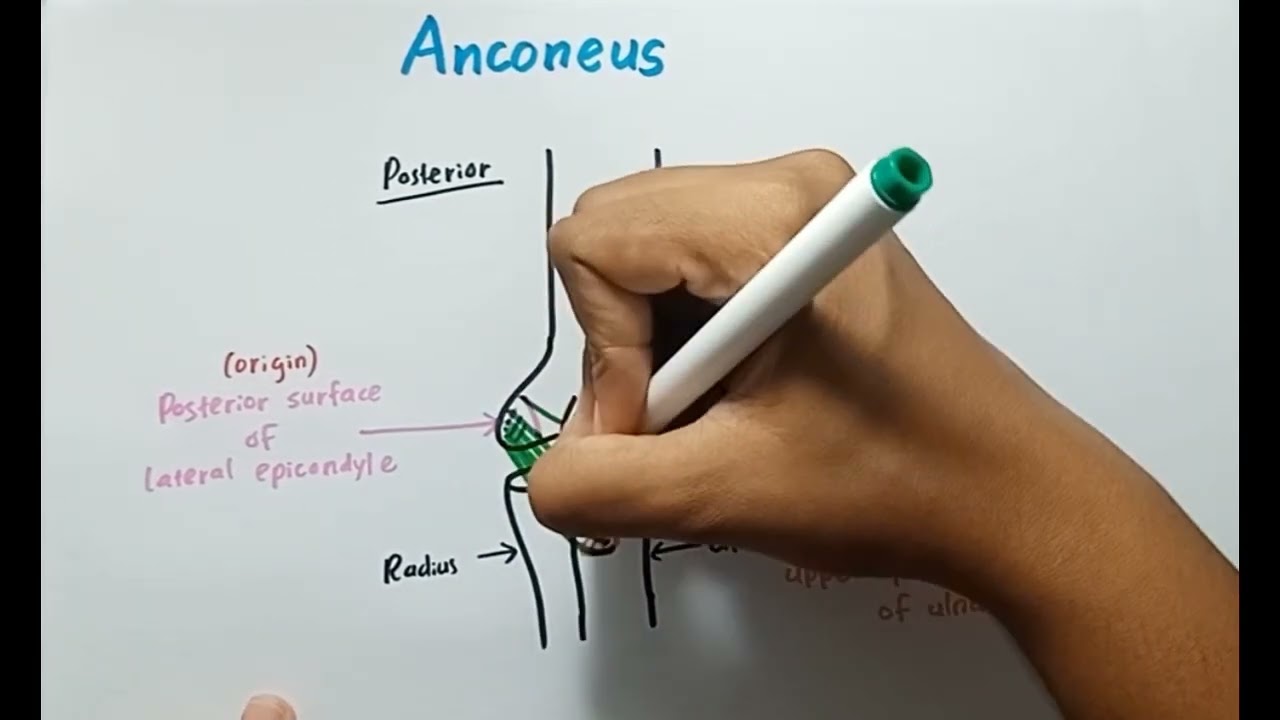 Anconeus
Posterior
(origin)
Posterior surface
of
lateral epicondyle
Radius
of